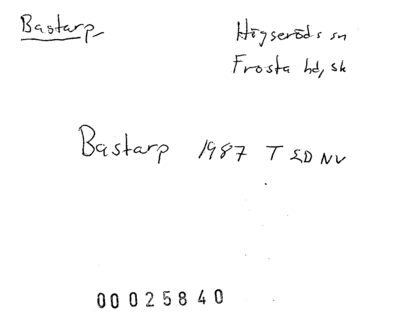 Bastarp
Högseröds sn
Frosta hd, sk
Bastarp 1987 T ED NV
00025840